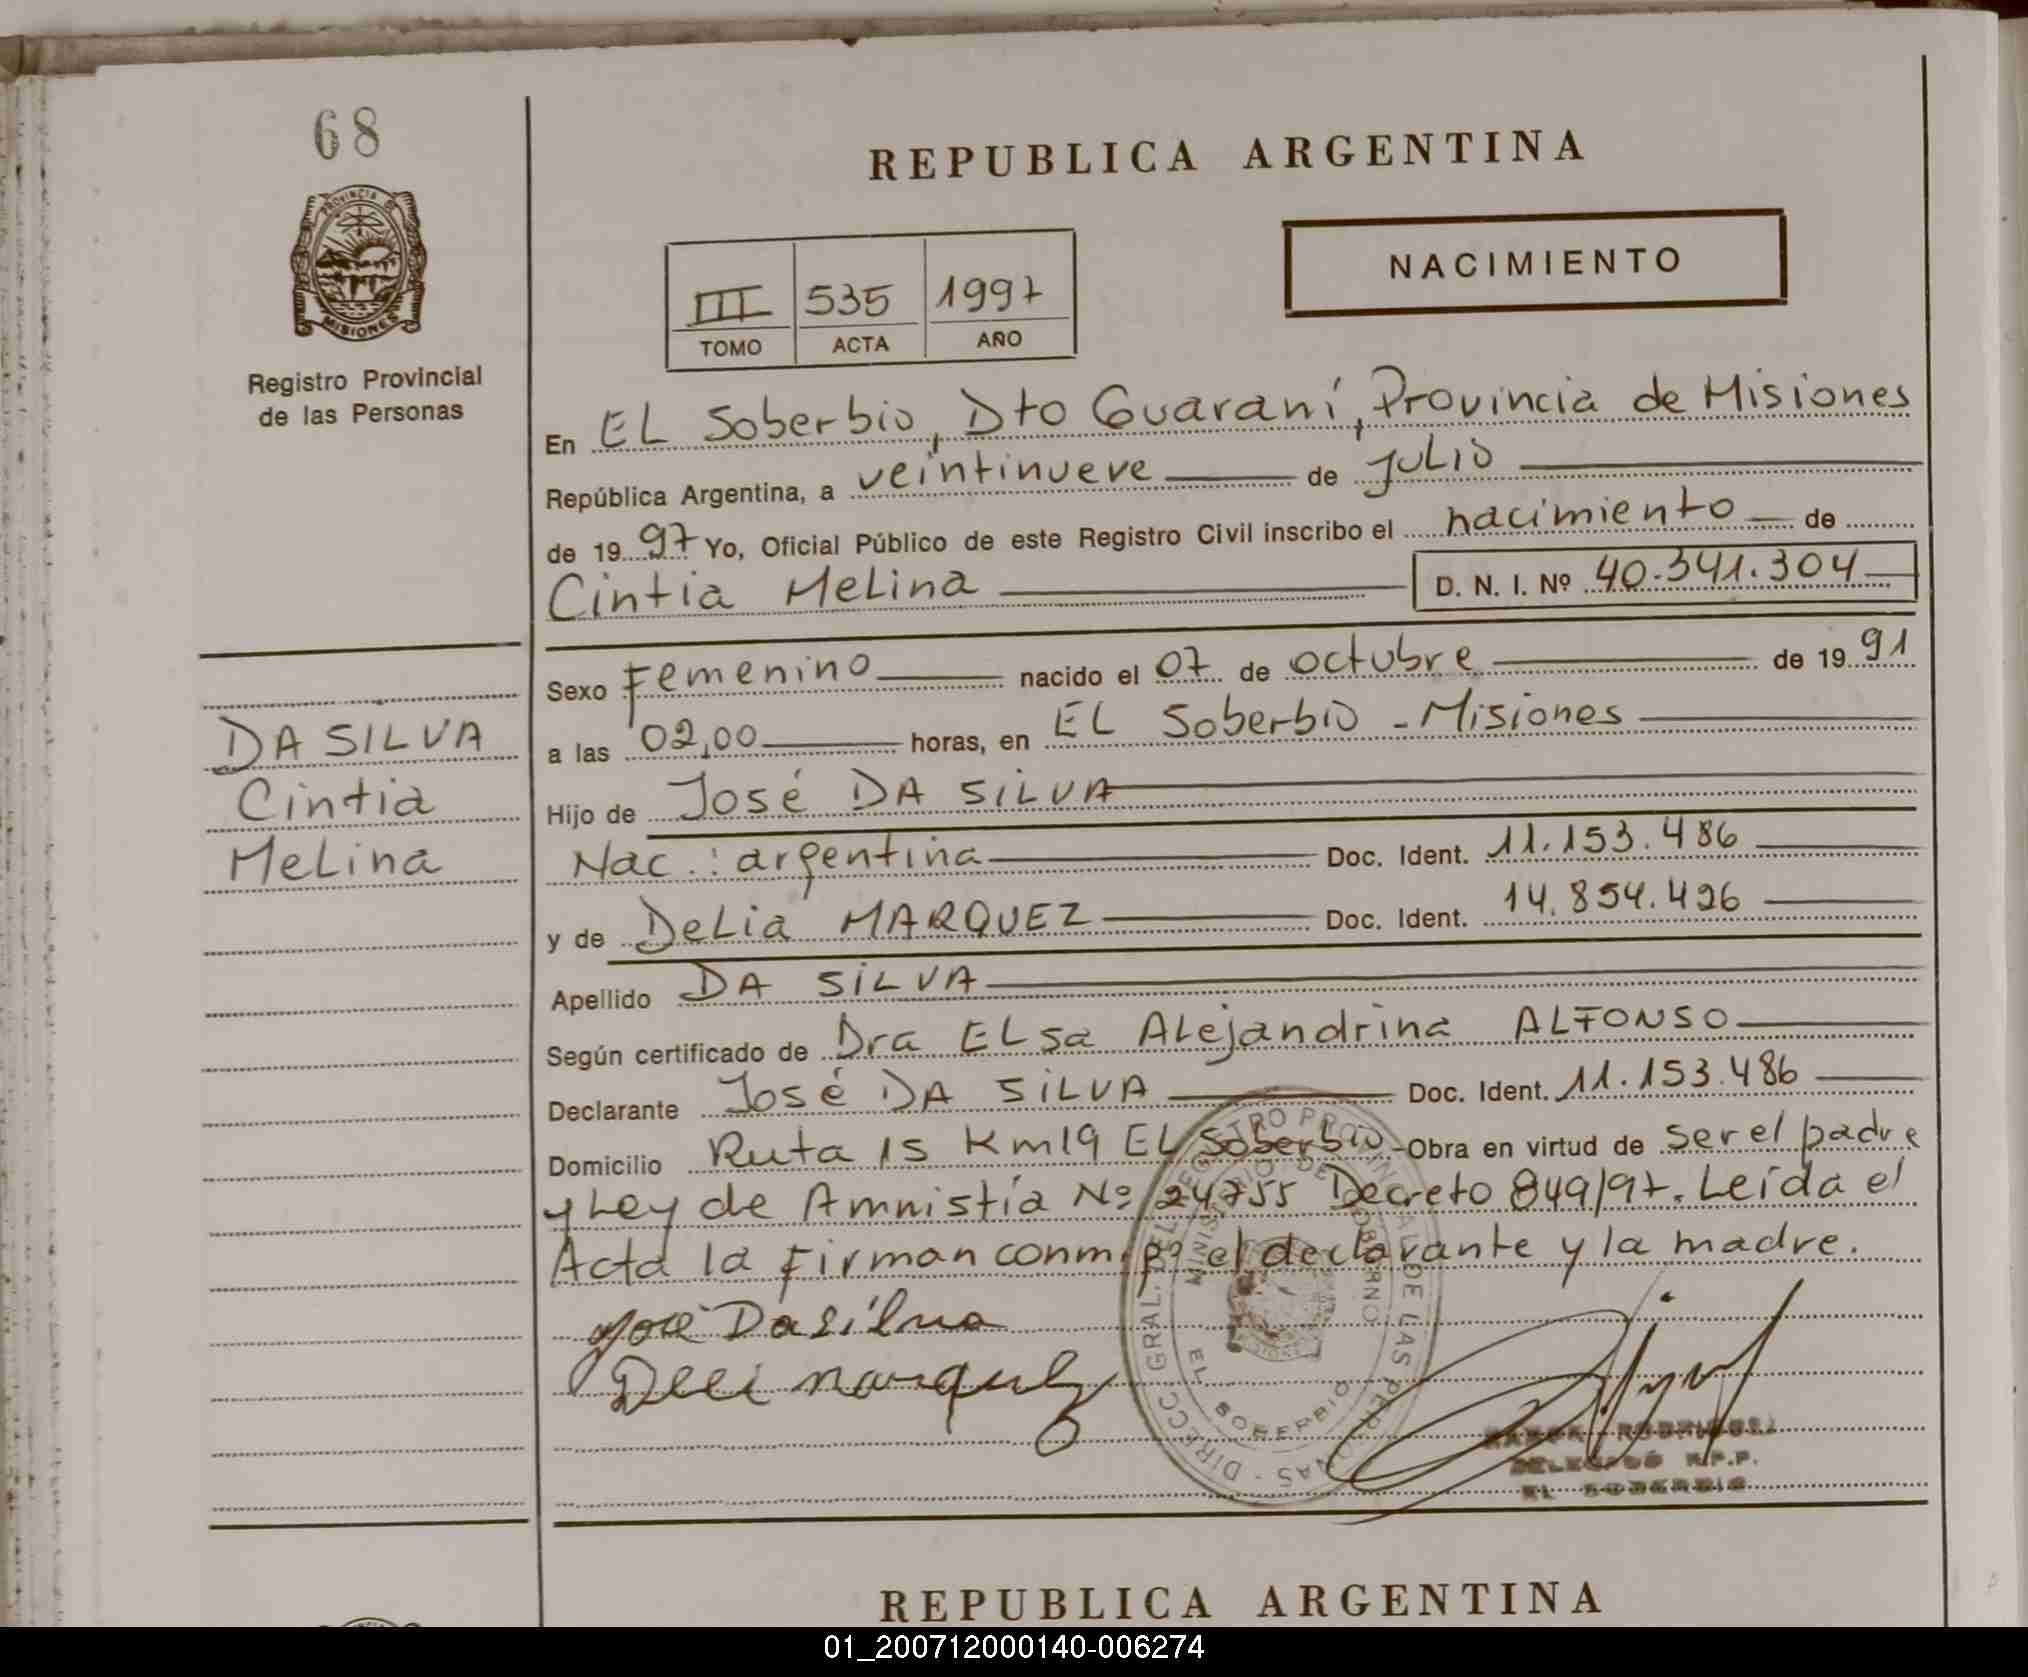 68
PROVINCIA DE
MISIONES
Registro Provincial
de las Personas
DA SILVA
Cintia
Melina
REPUBLICA ARGENTINA
NACIMIENTO
III 535 1997
TOMO ACTA AÑO
En EL Soberbio, Dto Guaraní, Provincia de Misiones
República Argentina, a veintinueve de Julio
de 1997 Yo, Oficial Público de este Registro Civil inscribo el nacimiento de
Cintia Melina D. N. I. Nº 40.341.304
Sexo Femenino nacido el 07 de octubre de 1991
a las 02,00 horas, en EL Soberbio - Misiones
Hijo de José DA SILVA
Nac.: argentina Doc. Ident. 11.153.486
y de Delia MARQUEZ Doc. Ident. 14.854.426
Apellido DA SILVA
Según certificado de Dra Elsa Alejandrina ALFONSO
Declarante José DA SILVA Doc. Ident. 11.153.486
Domicilio Ruta 15 Km19 EL Soberbio - Obra en virtud de ser el padre
y Ley de Amnistía Nº 24755 Decreto 849/97. Leída el
Acta la Firman conmigo el declarante y la madre.
José Dasilva
Deli marquez
DIRECC. GRAL. DEL REGISTRO PROVINCIAL DE LAS PERSONAS
MINISTERIO DE GOBIERNO
EL SOBERBIO
RODRIGUEZ
DELEGADO R.P.P.
EL SOBERBIO
REPUBLICA ARGENTINA
01_200712000140-006274